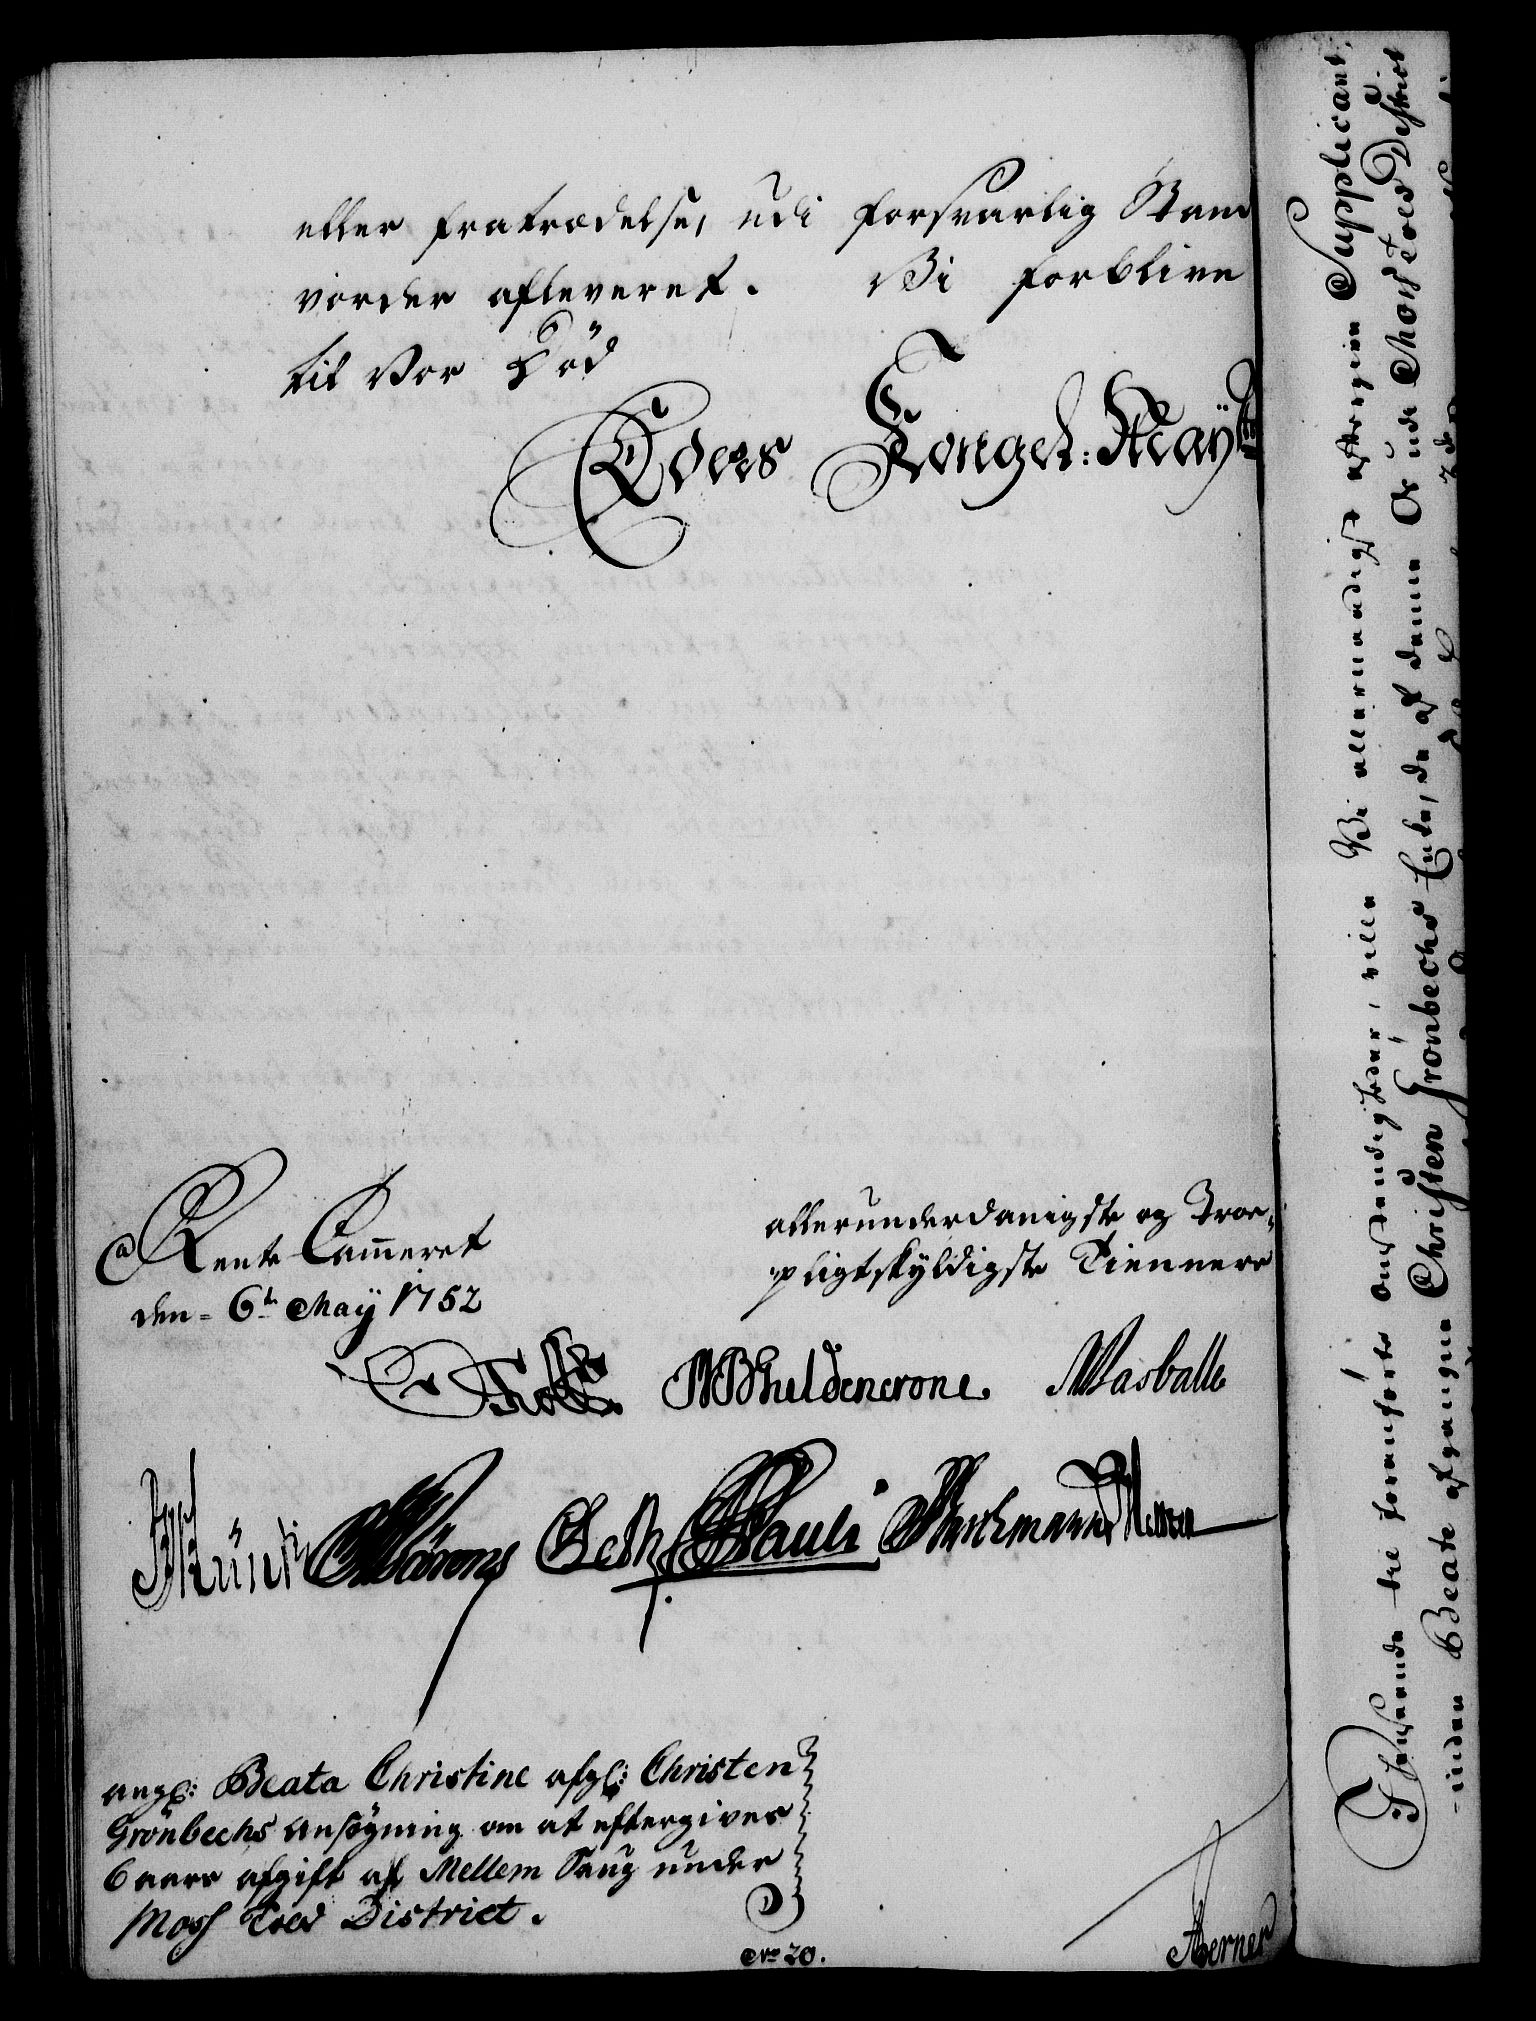 eller fratrædelse, udi forsvarlig Stand
vorder afleveret. Vi forblive
til Vor Död
Eders Kongel: Mayts
Rente Cammeret
den 6te May 1752
allerunderdanigste og Troe-
pligtskyldigste Tiennere
Holst WBHuldencrone. Masballe
Münch Pauli
ang: Beata Christine afg: Christen
Grönbechs Ansögning om at eftergives
6 aars afgift af Mellem Saug under
Moss Told District.
No 20.
Berner
Thi saadanne foranförte omstændigheder, ville Vi allernaadigst eftergive Supplicant-
inden Beate afgangne Christen Grönbechs Enke, de af denne Os udi Moss Told District